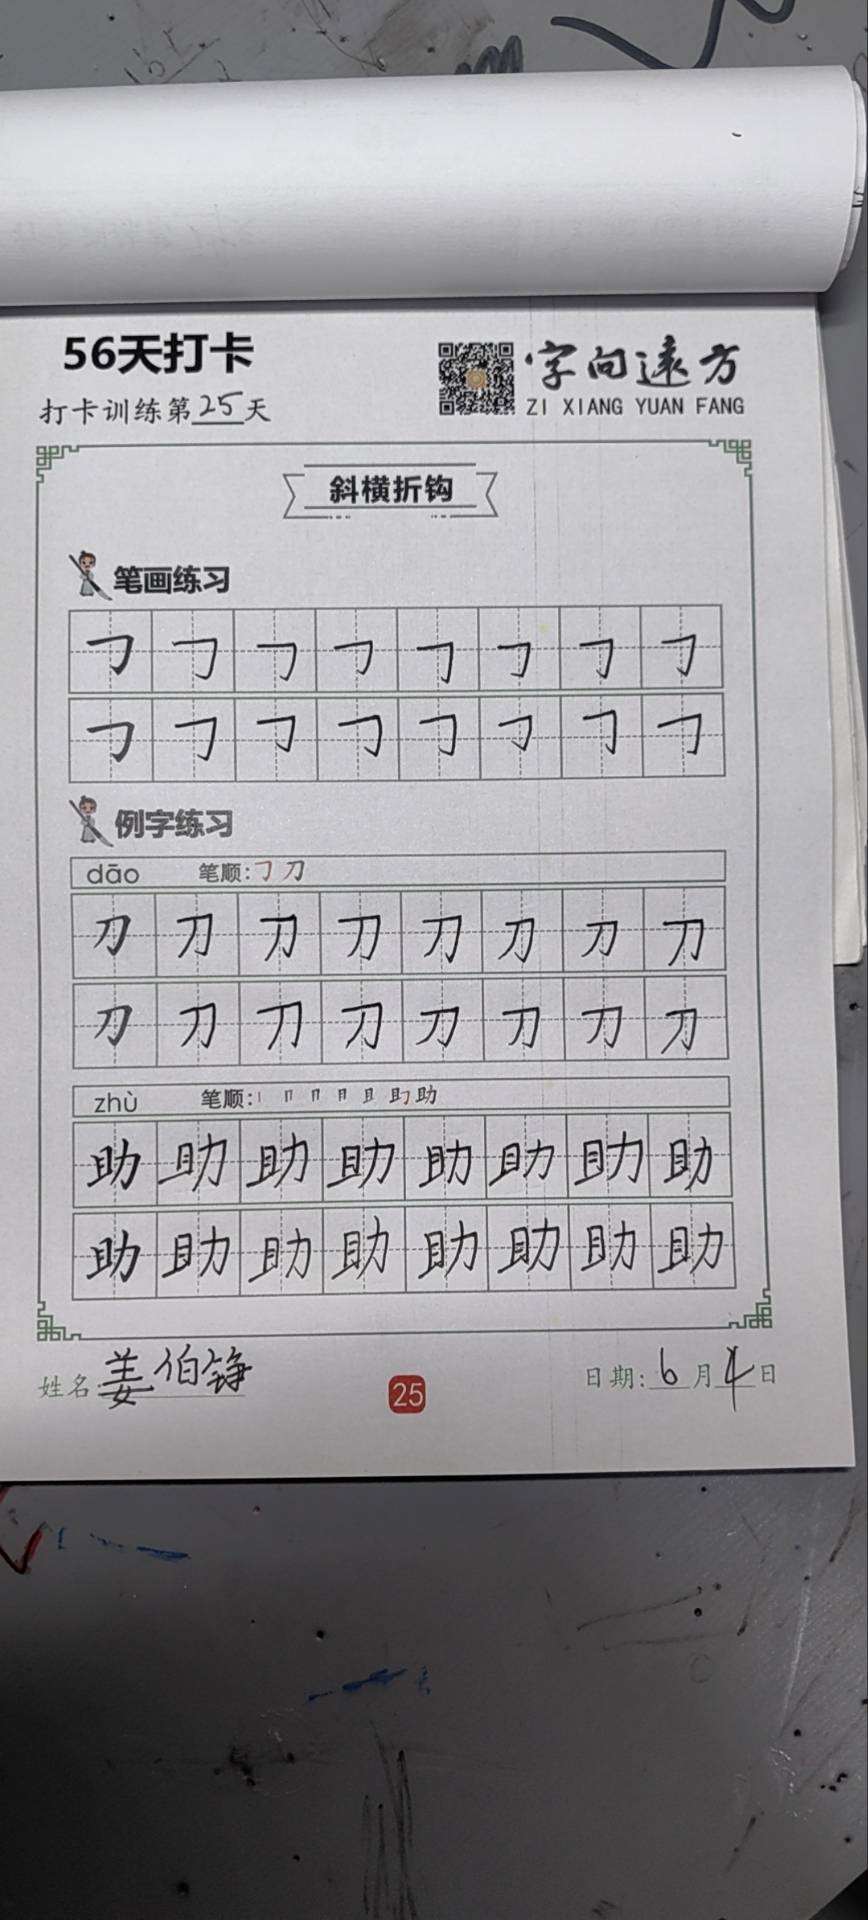 56天打卡
字向远方
打卡训练第25天
ZI XIANG YUAN FANG
斜横折钩
笔画练习
㇆ ㇆ ㇆ ㇆ ㇆ ㇆ ㇆ ㇆
㇆ ㇆ ㇆ ㇆ ㇆ ㇆ ㇆ ㇆
例字练习
dāo 笔顺:㇆ 刀
刀 刀 刀 刀 刀 刀 刀 刀
刀 刀 刀 刀 刀 刀 刀 刀
zhù 笔顺: 助
助 助 助 助 助 助 助 助
助 助 助 助 助 助 助 助
姓名:姜伯铮
25
日期:6月4日